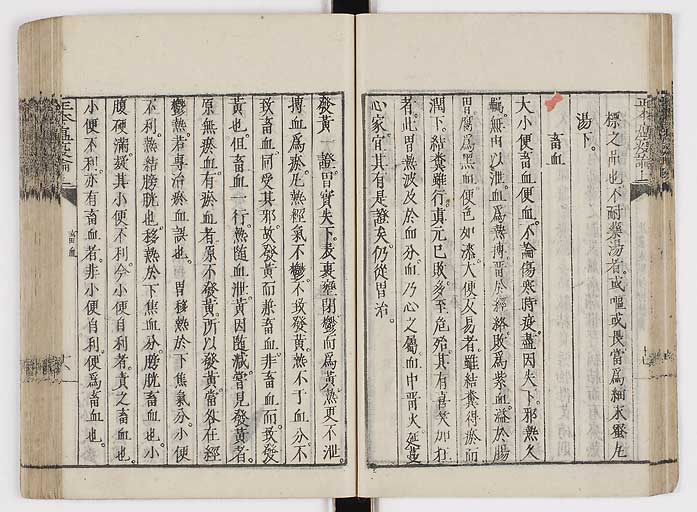 標之品也不耐藥湯者或嘔或畏當爲細末蜜丸
湯下。
畜血
大小便畜血便血。不論傷寒時疫。盡因失下。邪熱久
羈。無由以泄。血爲熱搏。畱於經絡。敗爲紫血。溢於腸
胃。腐爲黑血。便色如漆。大便反易者。雖結糞得瘀而
潤下。結糞雖行。眞元已敗。多至危殆。其有喜笑如狂
者。此胃熱波及於血分。血乃心之屬。血中畱火延蔓
心家。宜其有是證矣。仍從胃治。
發黃一證。胃實失下。表裏壅閉。鬱而爲黃。熱更不泄。
搏血爲瘀。凡熱經氣不鬱。不致發黃。熱不干血分。不
致畜血。同受其邪。故發黃而兼畜血。非畜血而致發
黃也。但畜血一行。熱隨血泄。黃因隨減。嘗見發黃者。
原無瘀血。有瘀血者。原不發黃。所以發黃。當咎在經
鬱熱。若專治瘀血。誤也。 胃移熱於下焦氣分。小便
不利。熱結膀胱也。移熱於下焦血分。膀胱畜血也。小
腹硬滿。疑其小便不利。今小便自利者。責之畜血也。
小便不利。亦有畜血者。非小便自利。便爲畜血也。
畜血